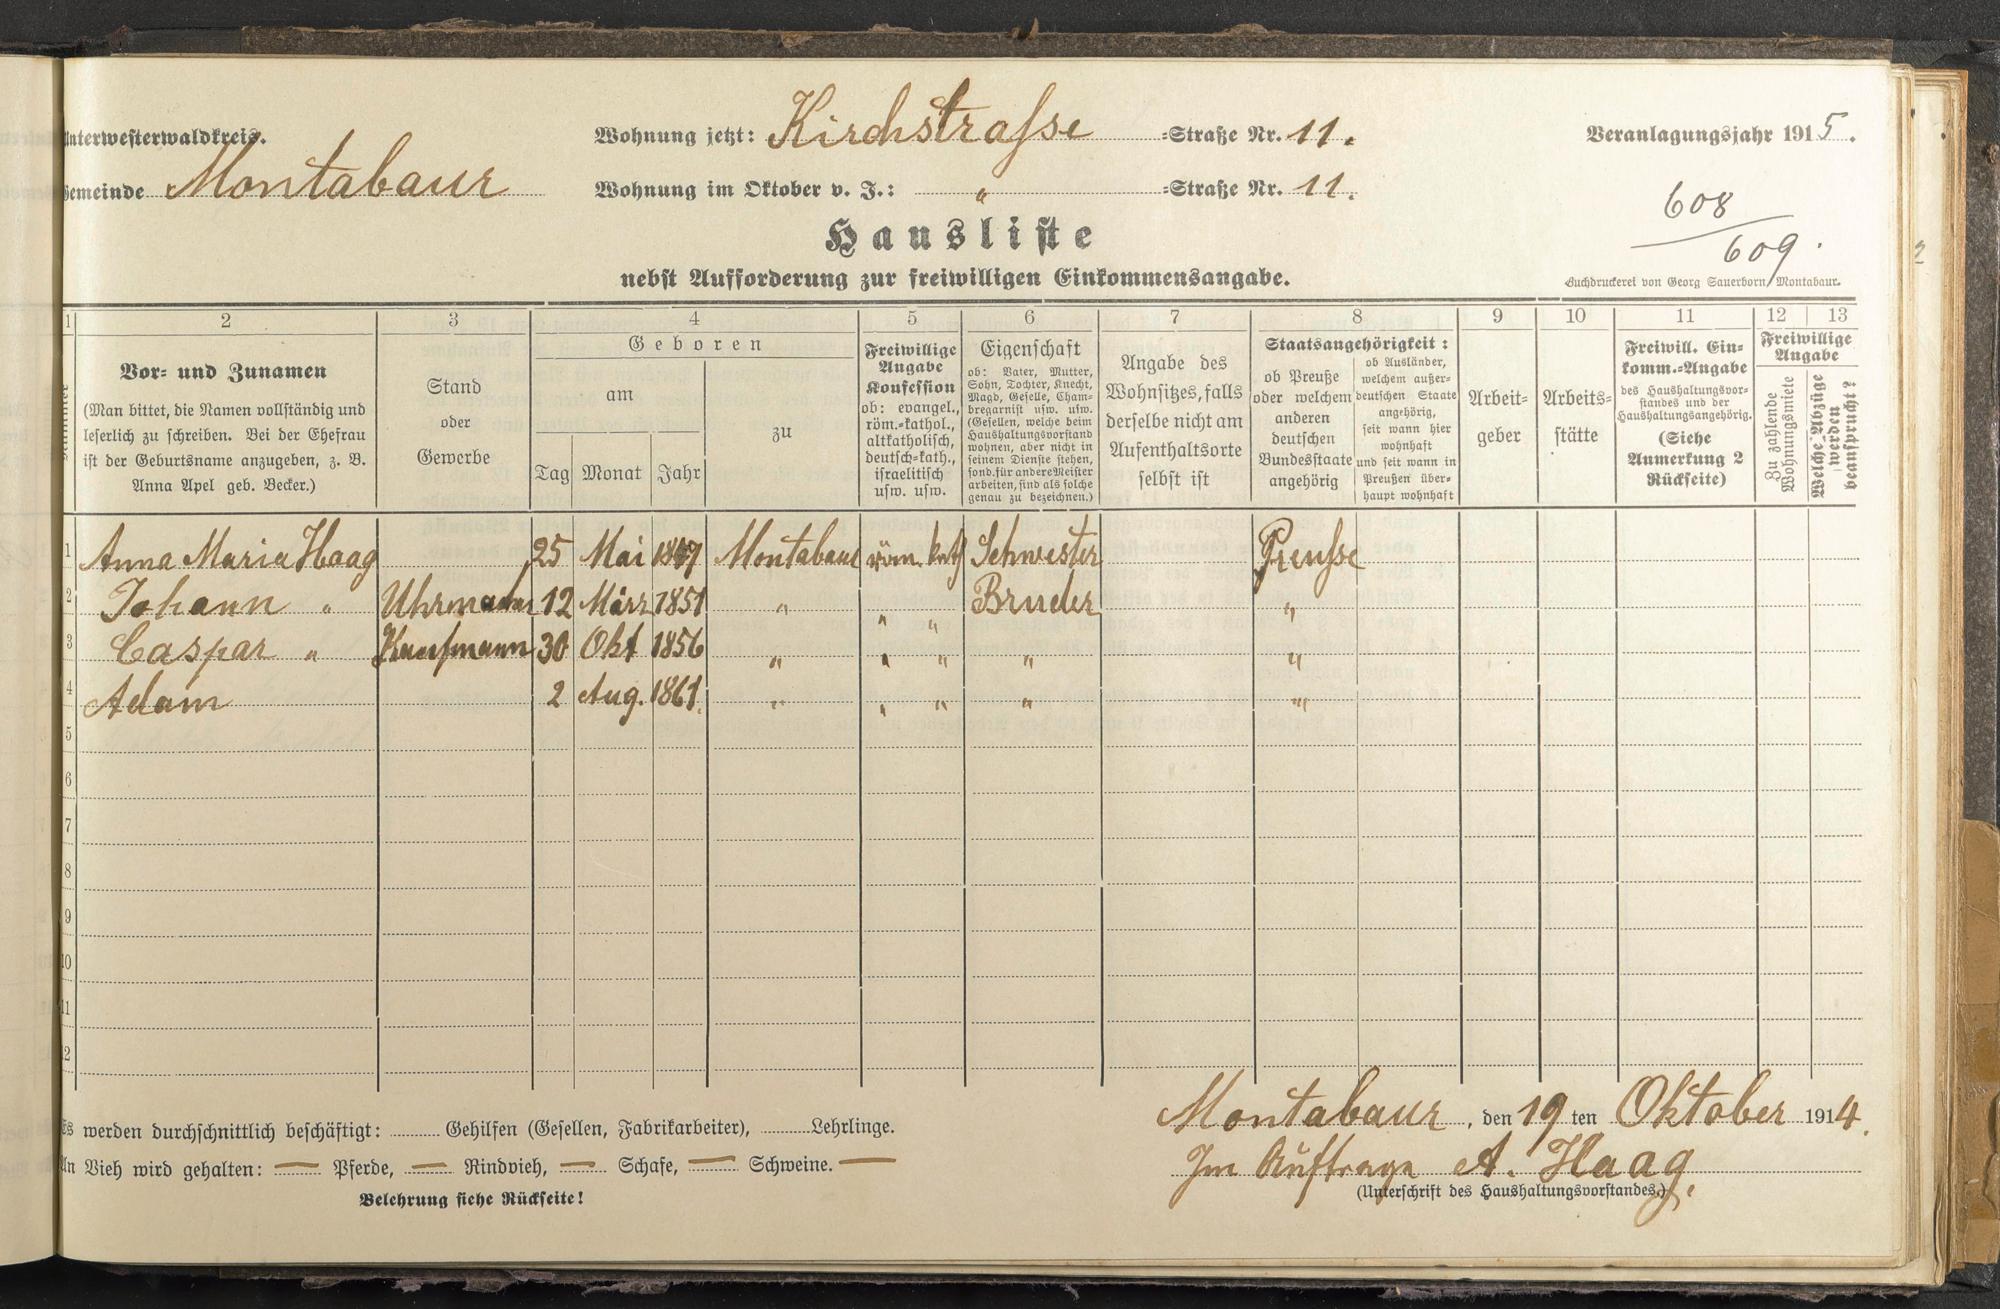 Unterwesterwaldkreis.
Wohnung jetzt: Kirchstrasse -Straße Nr. 11.
Veranlagungsjahr 1915.
Gemeinde Montabaur
Wohnung im Oktober v. J.: " -Straße Nr. 11.
608
609.
Hausliste
nebst Aufforderung zur freiwilligen Einkommensangabe.
Buchdruckerei von Georg Sauerborn, Montabaur.
1 2 3 4 5 6 7 8 9 10 11 12 13
Nummer
Vor- und Zunamen
(Man bittet, die Namen vollständig und
leserlich zu schreiben. Bei der Ehefrau
ist der Geburtsname anzugeben, z. B.
Anna Apel geb. Becker.)
Stand
oder
Gewerbe
Geboren
am
Tag Monat Jahr
zu
Freiwillige
Angabe
Konfession
ob: evangel.,
röm.-kathol.,
altkatholisch,
deutsch-kath.,
israelitisch
usw. usw.
Eigenschaft
ob: Vater, Mutter,
Sohn, Tochter, Knecht,
Magd, Geselle, Cham-
bregarnist usw. usw.
(Gesellen, welche beim
Haushaltungsvorstand
wohnen, aber nicht in
seinem Dienste stehen,
sond. für andere Meister
arbeiten, sind als solche
genau zu bezeichnen.)
Angabe des
Wohnsitzes, falls
derselbe nicht am
Aufenthaltsorte
selbst ist
Staatsangehörigkeit:
ob Preuße
oder welchem
anderen
deutschen
Bundesstaate
angehörig
ob Ausländer,
welchem außer-
deutschen Staate
angehörig,
seit wann hier
wohnhaft
und seit wann in
Preußen über-
haupt wohnhaft
Arbeit-
geber
Arbeits-
stätte
Freiwill. Ein-
komm.-Angabe
des Haushaltungsvor-
standes und der
Haushaltungsangehörig.
(Siehe
Anmerkung 2
Rückseite)
Freiwillige
Angabe
Zu zahlende
Wohnungsmiete
Welche Abzüge
werden
beansprucht?
1 Anna Maria Haag 25 Mai 1847 Montabaur röm. kath Schwester Preusse
2 Johann " Uhrmacher 12 März 1851 " " " Bruder "
3 Caspar " Kaufmann 30 Okt 1856 " " " " "
4 Adam 2 Aug. 1861. " " " " "
5
6
7
8
9
10
11
12
Es werden durchschnittlich beschäftigt: Gehilfen (Gesellen, Fabrikarbeiter), Lehrlinge.
An Vieh wird gehalten: — Pferde, — Rindvieh, — Schafe, — Schweine. —
Belehrung siehe Rückseite!
Montabaur, den 19 ten Oktober 1914.
Im Auftrage A. Haag.
(Unterschrift des Haushaltungsvorstandes.)